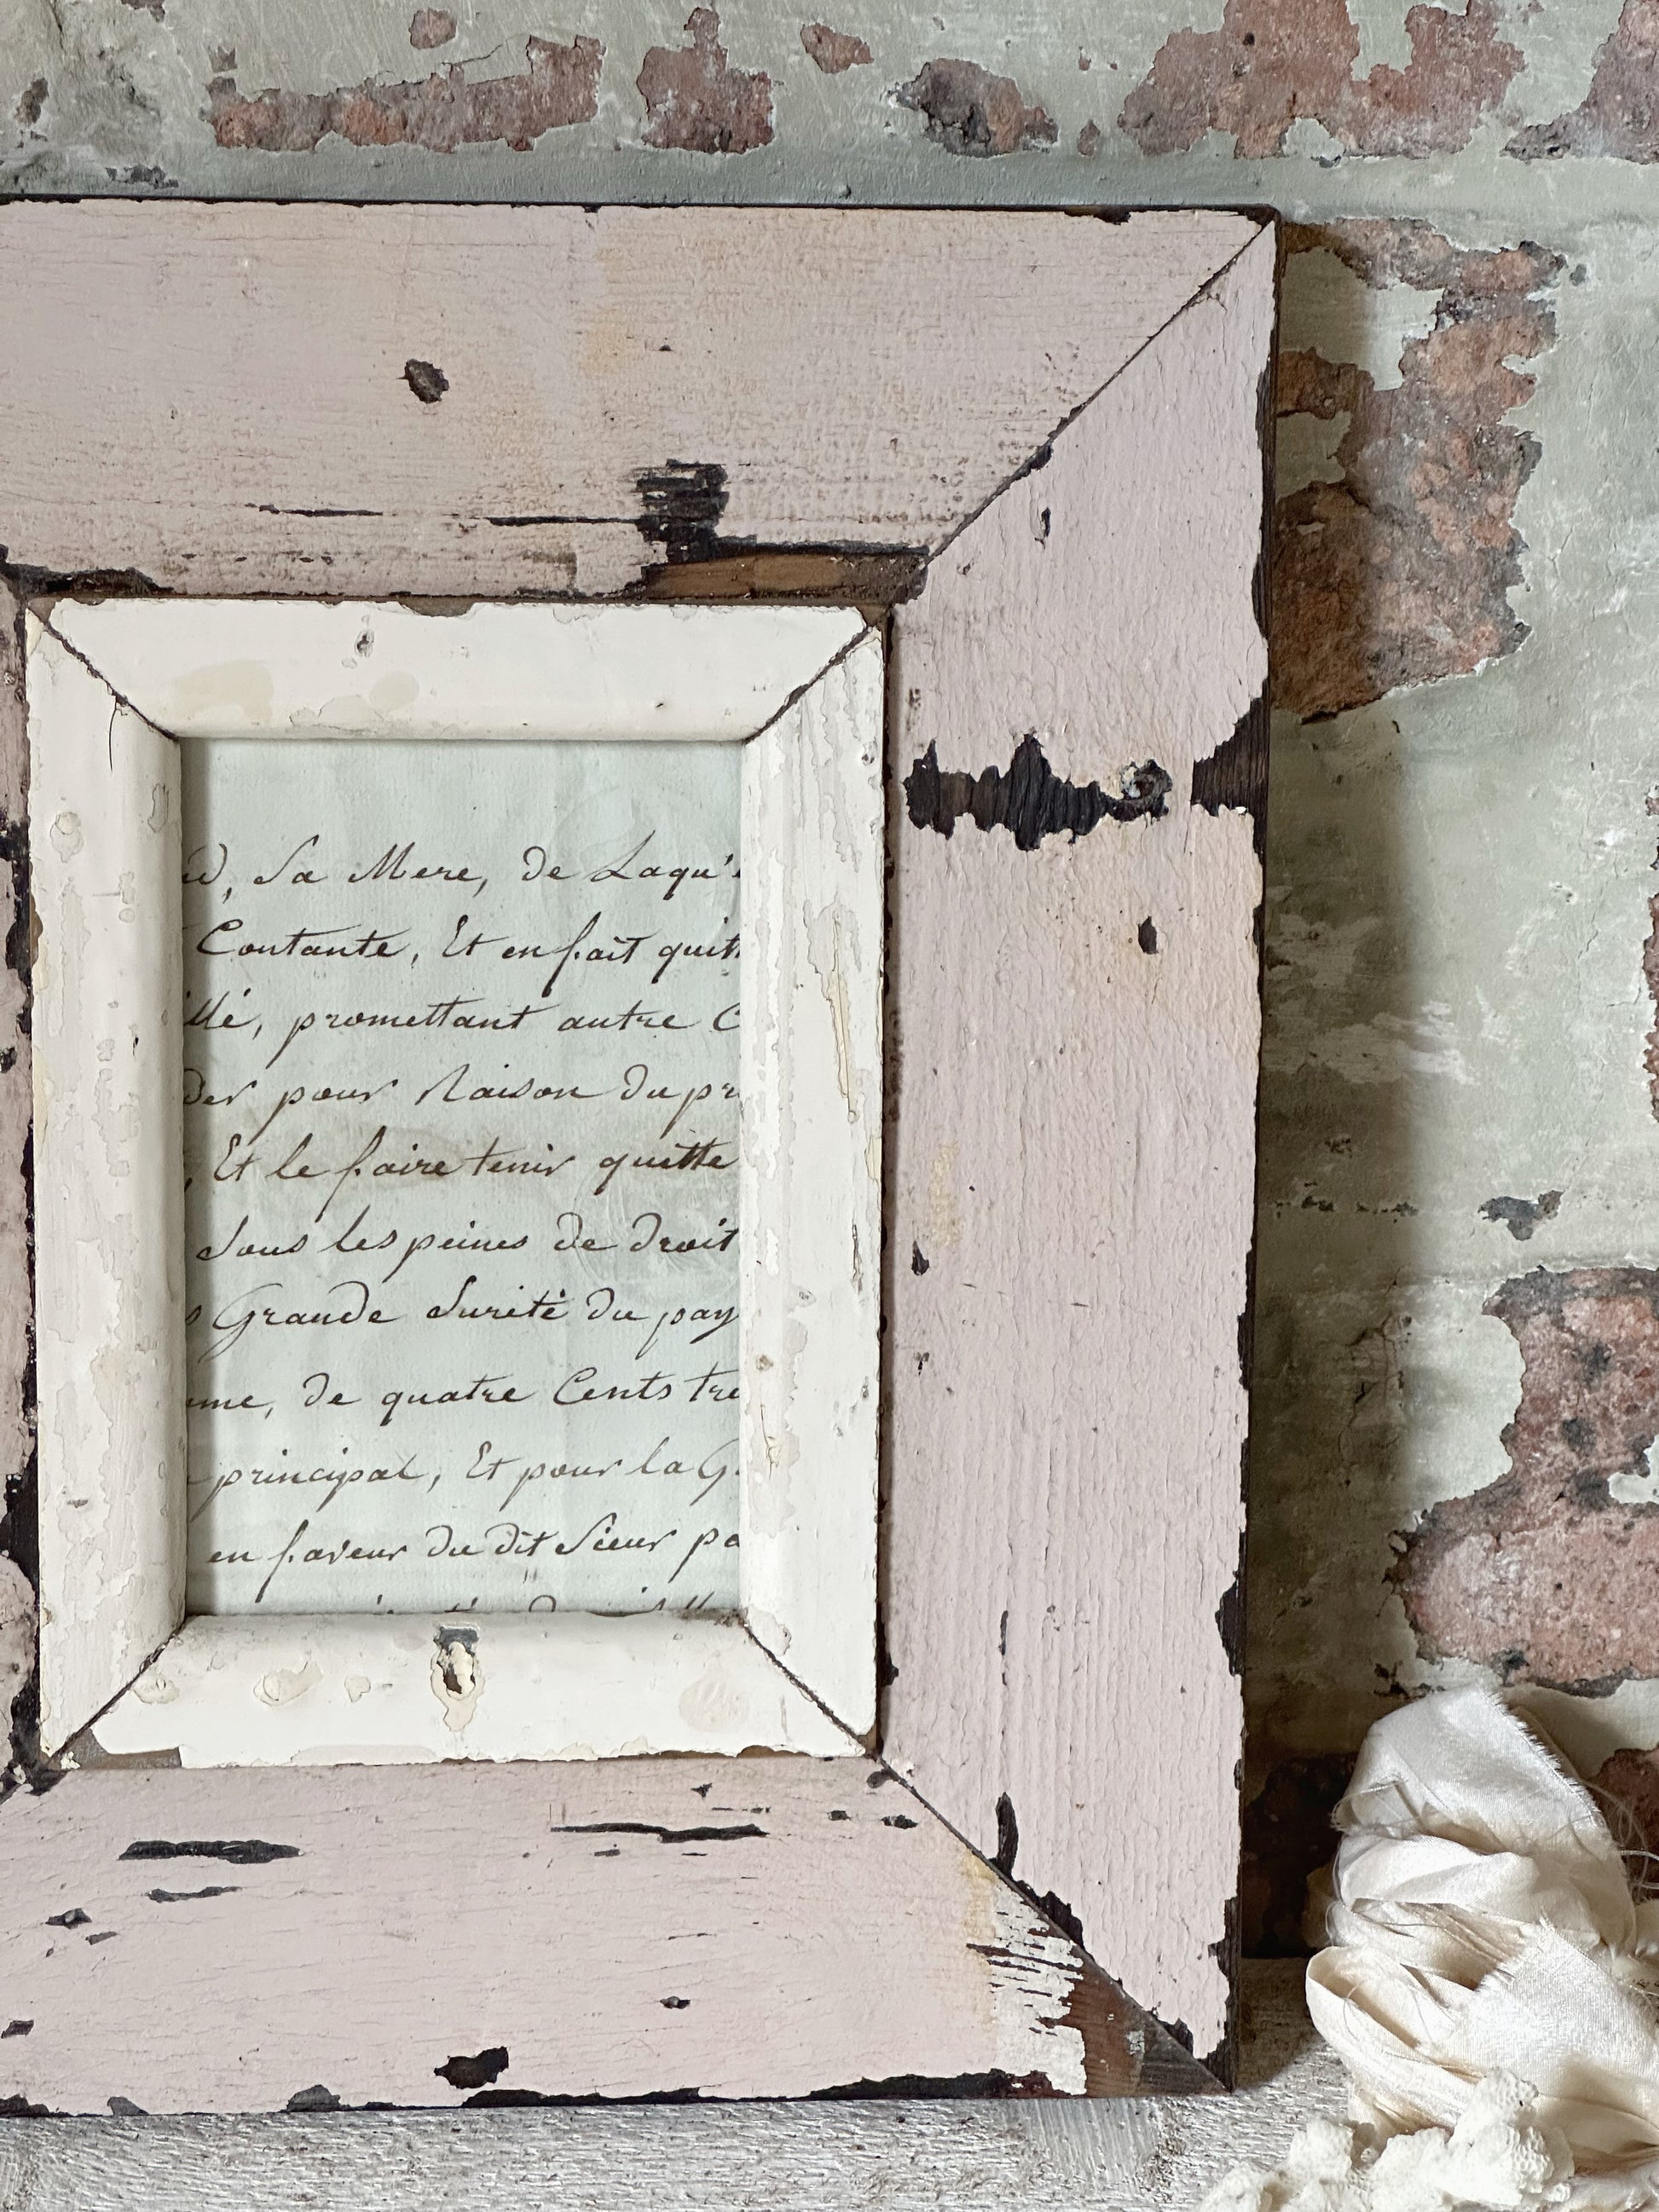 , Sa Mere, de Laqu'e
Contante, Et en fait quitt
illé, promettant autre C
der pour Raison du pr
, Et le faire tenir quitte
Sous les peines de droit
s Grande Sureté du pay
me, de quatre Cents tre
principal, Et pour la G
en faveur du dit Sieur pa